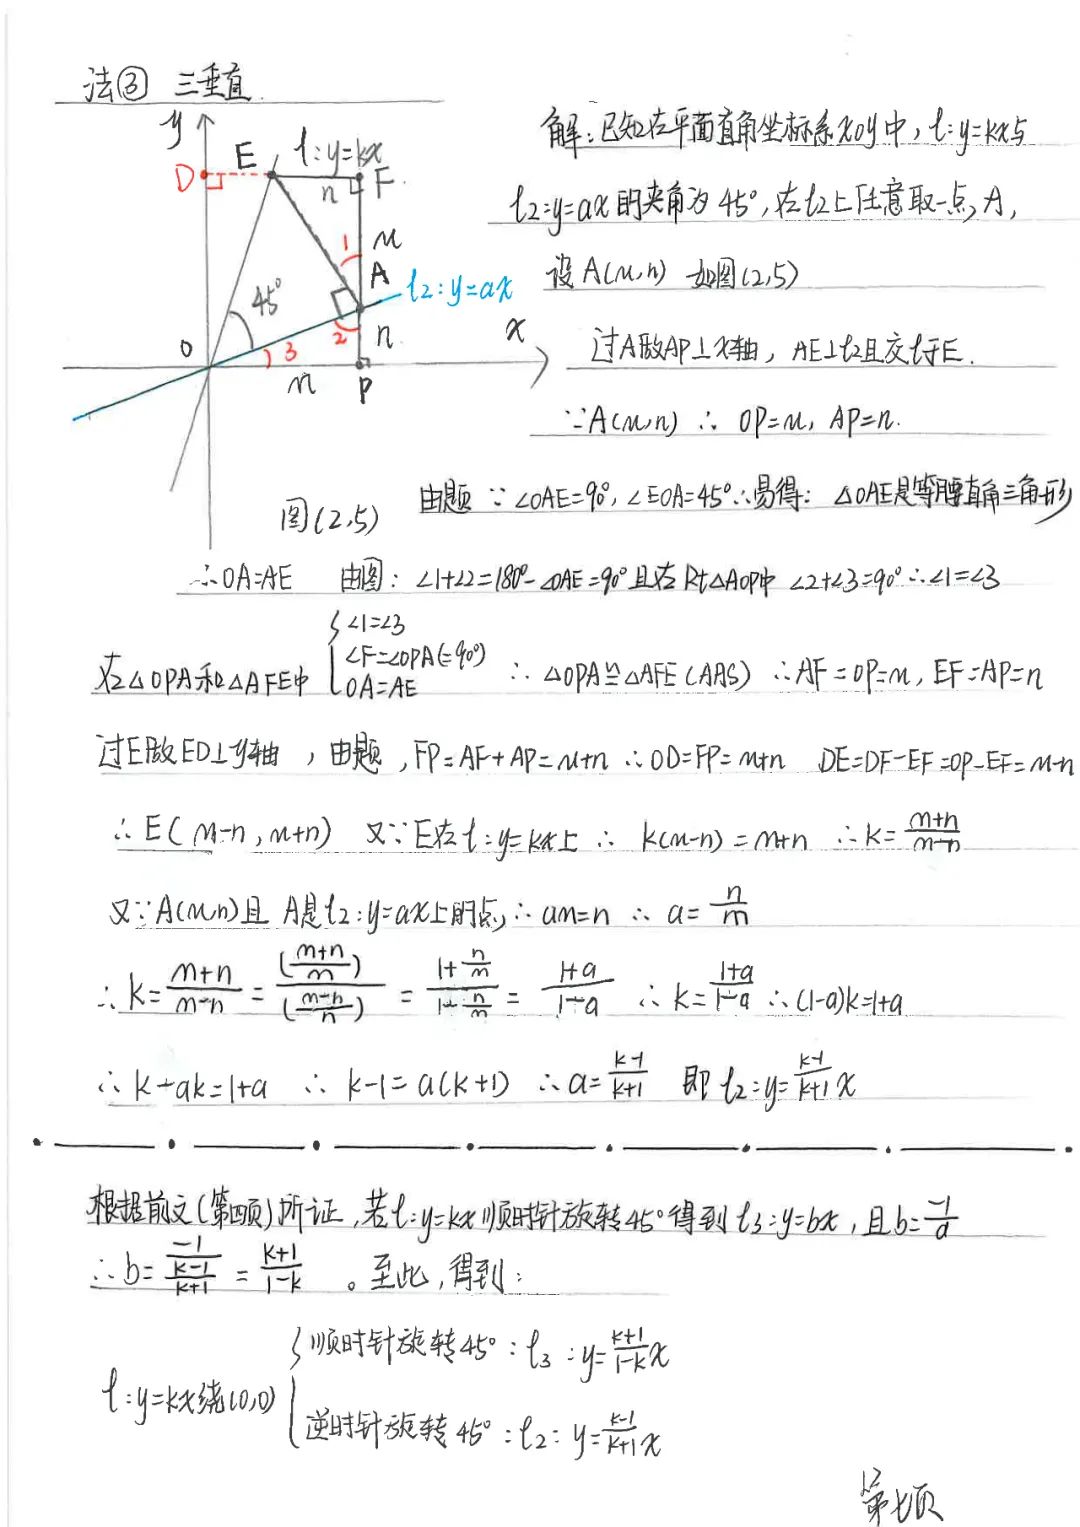 法③ 三垂直.
y
E
l:y=kx
D
n
F
1
m
A
l2:y=ax
45°
2
n
x
O
3
m
P
图(2,5)
解:已知在平面直角坐标系xoy中,l:y=kx与
l2:y=ax的夹角为45°,在l2上任意取一点A,
设A(m,n) 如图(2,5)
过A做AP⊥x轴,AE⊥l2且交l于E.
∵A(m,n) ∴ OP=m, AP=n.
由题 ∵∠OAE=90°,∠EOA=45°∴易得: △OAE是等腰直角三角形
∴OA=AE 由图:∠1+∠2=180°-∠OAE=90°且在Rt△AOP中 ∠2+∠3=90°∴∠1=∠3
在△OPA和△AFE中 { ∠1=∠3
∠F=∠OPA(=90°)
OA=AE
∴ △OPA≌△AFE(AAS) ∴AF=OP=m, EF=AP=n
过E做ED⊥y轴 ,由题,FP=AF+AP=m+n ∴OD=FP=m+n DE=DF-EF=OP-EF=m-n
∴E(m-n,m+n) 又∵E在l:y=kx上 ∴ k(m-n)=m+n ∴k=\frac{m+n}{m-n}
又∵A(m,n)且 A是l2:y=ax上的点,∴am=n ∴ a=\frac{n}{m}
∴k=\frac{m+n}{m-n}=\frac{(\frac{m+n}{m})}{(\frac{m-n}{n})}=\frac{1+\frac{n}{m}}{1-\frac{n}{m}}=\frac{1+a}{1-a} ∴k=\frac{1+a}{1-a} ∴(1-a)k=1+a
∴k-ak=1+a ∴ k-1=a(k+1) ∴a=\frac{k-1}{k+1} 即 l2:y=\frac{k-1}{k+1}x
根据前文(第四页)所证,若l:y=kx顺时针旋转45°得到l3:y=bx,且b=\frac{-1}{a}
∴b=\frac{-1}{\frac{k-1}{k+1}}=\frac{k+1}{1-k} 。至此,得到:
l:y=kx绕(0,0) { 顺时针旋转45°:l3:y=\frac{k+1}{1-k}x
逆时针旋转45°:l2:y=\frac{k-1}{k+1}x
第七页